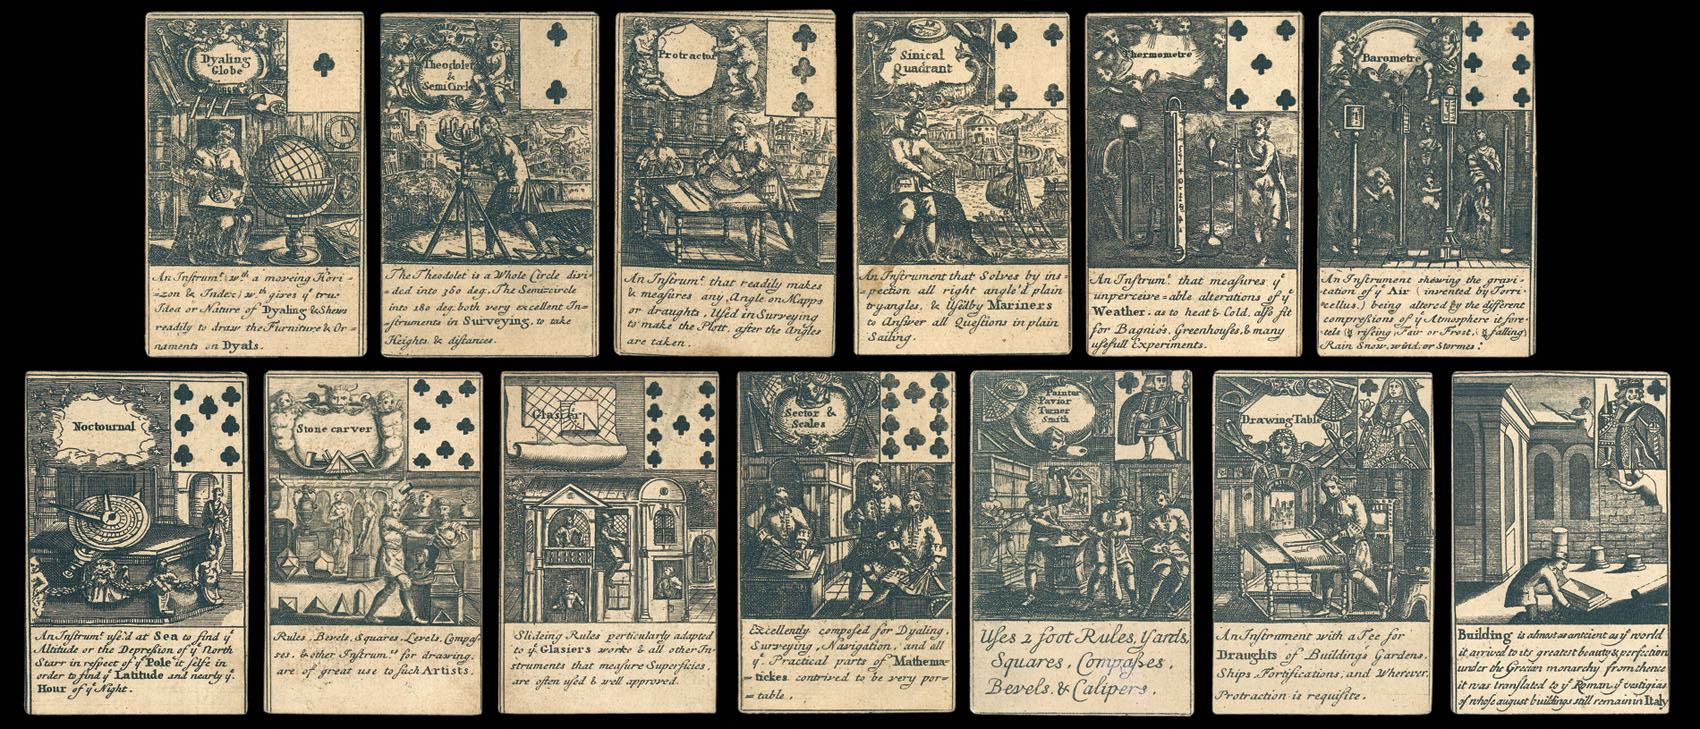 Dyaling
Globe
An Instrum.ᵗ (wᵗʰ a moveing Hori-
=zon & Index) wᵗʰ gives yᵉ true
Idea or Nature of Dyaling & Shews
readily to draw the Furniture & Or-
naments on Dyals.
Theodolet
&
SemiCircle
The Theodolet is a Whole Circle divi-
=ded into 360 deg. The Semicircle
into 180 deg. both very excellent In-
=struments in Surveying, to take
Heights, & distances.
Protractor
An Instrum.ᵗ that readily makes
& measures any Angle on Mapps
or draughts, Us'd in Surveying
to make the Plott, after the Angles
are taken.
Sinical
Quadrant
An Instrument that Solves by ins=
=pection all right angle'd plain
tryangles, & Us'd by Mariners
to Answer all Questions in plain
Sailing.
Thermometre
An Instrum.ᵗ that measures yᵉ
unperceive-able alterations of yᵉ
Weather, as to heat & Cold, also fit
for Bagnio's, Greenhouses, & many
usefull Experiments.
Barometre
An Instrument shewing the gravi-
tation of yᵉ Air (invented by Torri-
cellus) being altered by the different
compressions of yᵉ Atmosphere it fore-
tels (☿ riseing) Fair or Frost, (☿ falling)
Rain Snow, wind, or Stormes:
Noctournal
An Instrum.ᵗ use'd at Sea to find yᵉ
Altitude or the Depresion of yᵉ North
Starr in respect of yᵉ Pole it selfe in
order to find yᵉ Latitude and nearly yᵉ
Hour of yᵉ Night.
Stone carver
Rules, Bevels, Squares, Levels, Compas-
ses, & other Instrum.ᵗˢ for drawing,
are of great use to such Artists.
Glasier
Slideing Rules perticularly adapted
to yᵉ Glasiers works & all other In-
struments that measure Superficies,
are often used & well approved.
Sector &
Scales
Excellently composed for Dyaling,
Surveying, Navigation, and all
yᵉ Practical parts of Mathema-
=tickes contrived to be very por-
=table.
Painter
Pavior
Turner
Smith
Uses 2 foot Rules, Yards,
Squares, Compasses,
Bevels, & Calipers.
Drawing Table
An Instrument with a Tee for
Draughts of Buildings Gardens,
Ships, Fortifications, and Wherever
Protraction is requisite.
Building is almost as antcient as yᵉ world
it arrived to its greatest beauty & perfection
under the Grecian monarchy from thence
it was translated to yᵉ Roman, yᵉ vestigias
of whose august buildings still remain in Italy